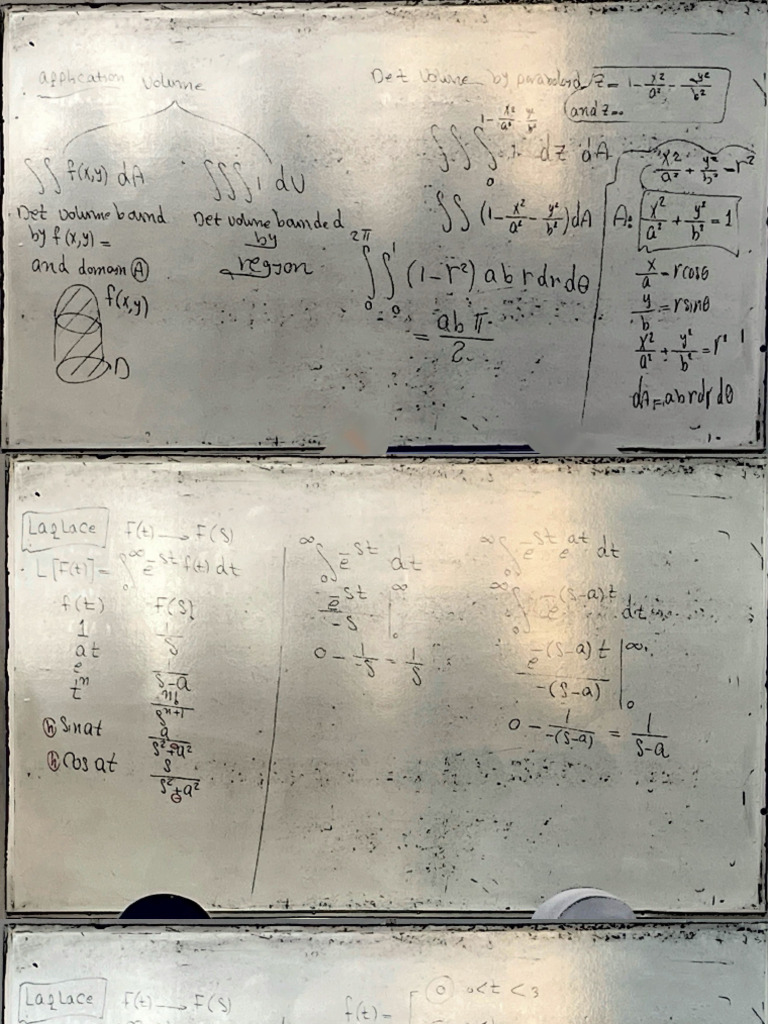 application Volume
∬ f(x,y) dA
Det volume bound
by f(x,y) =
and domain Ⓐ
f(x,y)
D
∭ 1 dV
Det volume bounded
by
region
Det Volume by paraboloid z = 1 - x²/a² - y²/b²
and z=
∬ ∫₀^(1 - x²/a² - y²/b²) 1 dz dA
∬ (1 - x²/a² - y²/b²) dA
∫₀^2π ∫₀^1 (1-r²) a b r dr dθ
= ab π / 2
x²/a² + y²/b² = r²
A: x²/a² + y²/b² = 1
x/a = r cosθ
y/b = r sinθ
x²/a² + y²/b² = r² 1
dA = a b r dr dθ
Laplace f(t) → F(S)
L[F(t)] = ∫₀^∞ e^-St f(t) dt
f(t) F(S)
1 1/S
e^at 1/(S-a)
t^n n!/S^(n+1)
(h) sin at a/(S²+a²)
(h) Cos at S/(S²+a²)
∫₀^∞ e^-St dt
e^-St/-S |₀^∞
0 - 1/-S = 1/S
∫₀^∞ e^-St e^at dt
∫₀^∞ e^-(S-a)t dt
e^-(S-a)t / -(S-a) |₀^∞
0 - 1/-(S-a) = 1/(S-a)
Laplace f(t) → F(S)
f(t) = 0 0<t<3